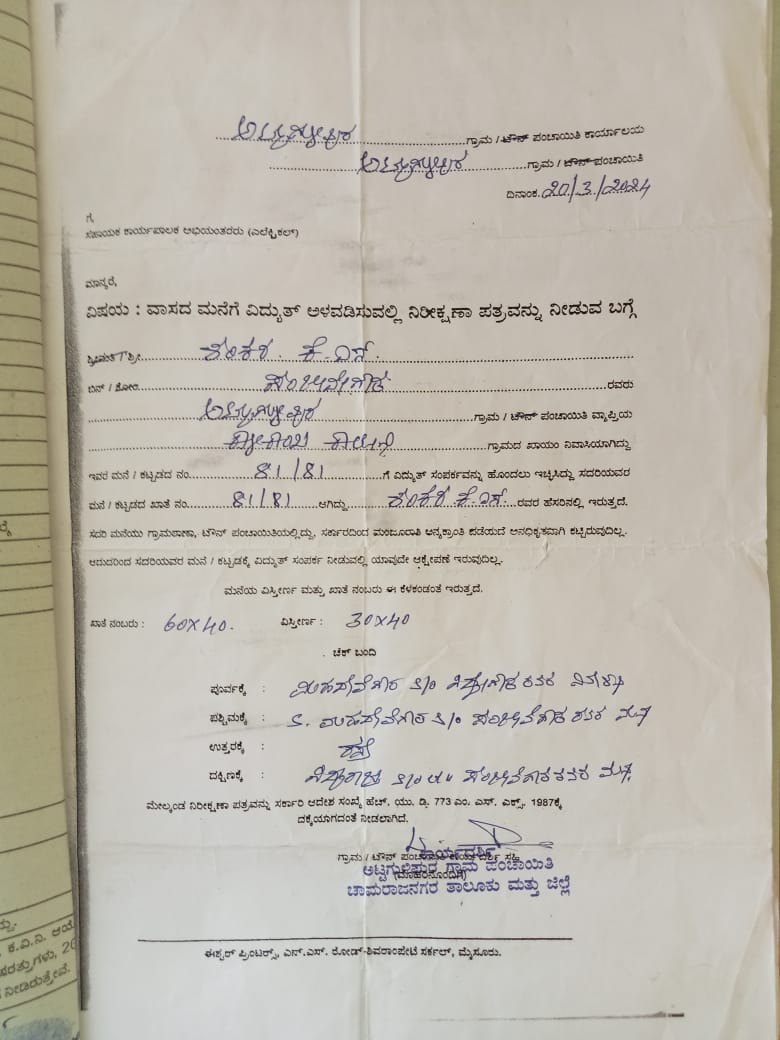 ಅಟ್ಟಗುಳಿಪುರ ಗ್ರಾಮ / ಟೌನ್ ಪಂಚಾಯಿತಿ ಕಾರ್ಯಾಲಯ
ಅಟ್ಟಗುಳಿಪುರ ಗ್ರಾಮ / ಟೌನ್ ಪಂಚಾಯಿತಿ
ದಿನಾಂಕ. 20/3/2024
ಗೆ,
ಸಹಾಯಕ ಕಾರ್ಯಪಾಲಕ ಅಭಿಯಂತರರು (ಎಲೆಕ್ಟ್ರಿಕಲ್)
ಮಾನ್ಯರೆ,
ವಿಷಯ : ವಾಸದ ಮನೆಗೆ ವಿದ್ಯುತ್ ಅಳವಡಿಸುವಲ್ಲಿ ನಿರೀಕ್ಷಣಾ ಪತ್ರವನ್ನು ನೀಡುವ ಬಗ್ಗೆ
ಶ್ರೀಮತಿ / ಶ್ರೀ ಶಂಕರ. ಕೆ.ಎಸ್.
ಬಿನ್ / ಕೋಂ ರವರು
ಅಟ್ಟಗುಳಿಪುರ ಗ್ರಾಮ / ಟೌನ್ ಪಂಚಾಯಿತಿ ವ್ಯಾಪ್ತಿಯ
ಗ್ರಾಮದ ಖಾಯಂ ನಿವಾಸಿಯಾಗಿದ್ದು
ಇವರ ಮನೆ / ಕಟ್ಟಡದ ನಂ. 81/81 ಗೆ ವಿದ್ಯುತ್ ಸಂಪರ್ಕವನ್ನು ಹೊಂದಲು ಇಚ್ಛಿಸಿದ್ದು ಸದರಿಯವರ
ಮನೆ / ಕಟ್ಟಡದ ಖಾತೆ ನಂ. 81/81 ಆಗಿದ್ದು ಶಂಕರ ಕೆ.ಎಸ್ ರವರ ಹೆಸರಿನಲ್ಲಿ ಇರುತ್ತದೆ.
ಸದರಿ ಮನೆಯು ಗ್ರಾಮಠಾಣಾ, ಟೌನ್ ಪಂಚಾಯಿತಿಯಲ್ಲಿದ್ದು, ಸರ್ಕಾರದಿಂದ ಮಂಜೂರಾತಿ ಅನ್ಯಕ್ರಾಂತಿ ಪಡೆಯದೆ ಅನಧಿಕೃತವಾಗಿ ಕಟ್ಟಿರುವುದಿಲ್ಲ.
ಆದುದರಿಂದ ಸದರಿಯವರ ಮನೆ / ಕಟ್ಟಡಕ್ಕೆ ವಿದ್ಯುತ್ ಸಂಪರ್ಕ ನೀಡುವಲ್ಲಿ ಯಾವುದೇ ಆಕ್ಷೇಪಣೆ ಇರುವುದಿಲ್ಲ.
ಮನೆಯ ವಿಸ್ತೀರ್ಣ ಮತ್ತು ಖಾತೆ ನಂಬರು ಈ ಕೆಳಕಂಡಂತೆ ಇರುತ್ತದೆ.
ಖಾತೆ ನಂಬರು : 60X40. ವಿಸ್ತೀರ್ಣ : 30X40
ಚೆಕ್ ಬಂದಿ
ಪೂರ್ವಕ್ಕೆ : S/o
ಪಶ್ಚಿಮಕ್ಕೆ : S/o ರವರ ಮನೆ
ಉತ್ತರಕ್ಕೆ : ರಸ್ತೆ
ದಕ್ಷಿಣಕ್ಕೆ : S/o ರವರ ಮನೆ
ಮೇಲ್ಕಂಡ ನಿರೀಕ್ಷಣಾ ಪತ್ರವನ್ನು ಸರ್ಕಾರಿ ಆದೇಶ ಸಂಖ್ಯೆ ಹೆಚ್. ಯು. ಡಿ. 773 ಎಂ. ಎಸ್. ಎಕ್ಸ್. 1987ಕ್ಕೆ
ದಕ್ಕೆಯಾಗದಂತೆ ನೀಡಲಾಗಿದೆ.
ಕಾರ್ಯದರ್ಶಿ
ಗ್ರಾಮ / ಟೌನ್ ಪಂಚಾಯಿತಿ ಕಾರ್ಯದರ್ಶಿ ಸಹಿ
ಅಟ್ಟಗುಳಿಪುರ ಗ್ರಾಮ ಪಂಚಾಯಿತಿ
(ಮೊಹರಿನೊಂದಿಗೆ)
ಚಾಮರಾಜನಗರ ತಾಲೂಕು ಮತ್ತು ಜಿಲ್ಲೆ
ಈಶ್ವರ್ ಪ್ರಿಂಟರ್ಸ್, ಎನ್.ಎಸ್. ರೋಡ್-ಶಿವರಾಂಪೇಟೆ ಸರ್ಕಲ್, ಮೈಸೂರು.